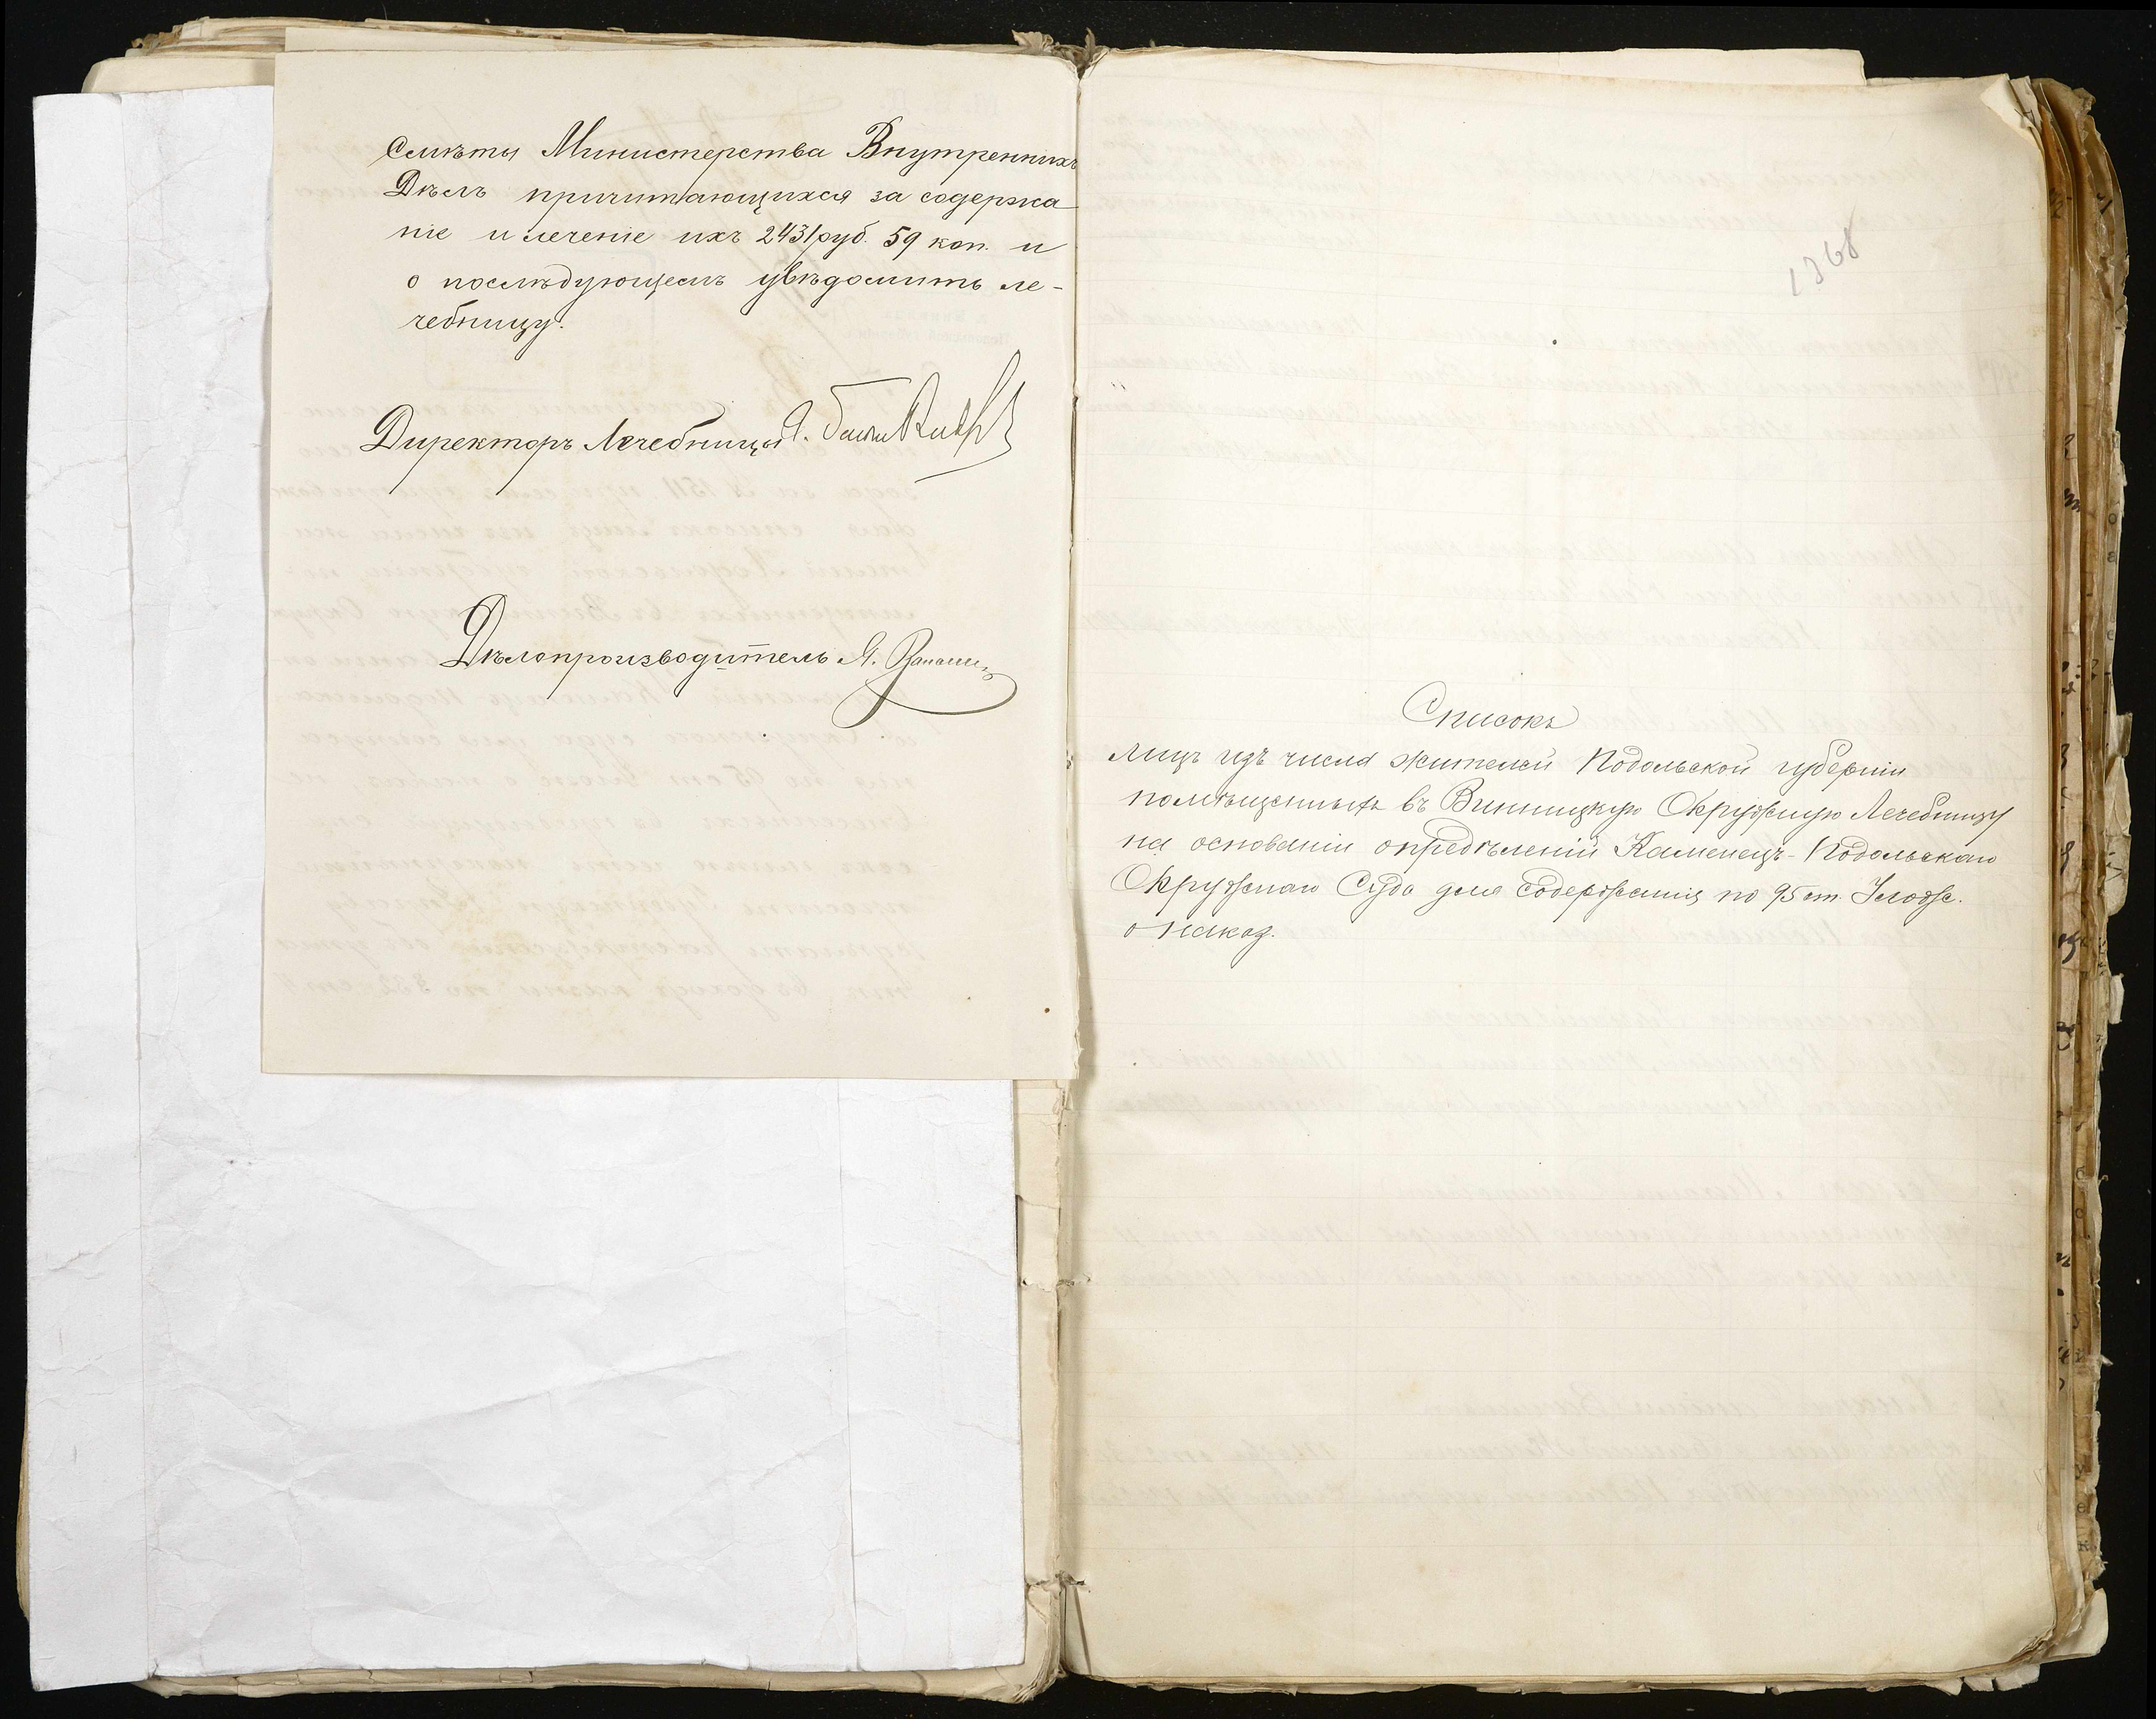 Смѣты Министерства Внутреннихъ
Дѣлъ причитающихся за содержа
ніе и леченіе ихъ 2431 руб. 59 коп. и
о послѣдующемъ увѣдомить ле-
чебницу.
Директоръ Лечебницы
Дѣлопроизводитель
1368
Списокъ
лицъ изъ числа жителей Подольской губерніи
помѣщенныхъ въ Винницкую Окружную Лечебницу
на основаніи опредѣленій Каменецъ-Подольскаго
Окружнаго Суда для содержанія по 95 ст. Улож.
о наказ.